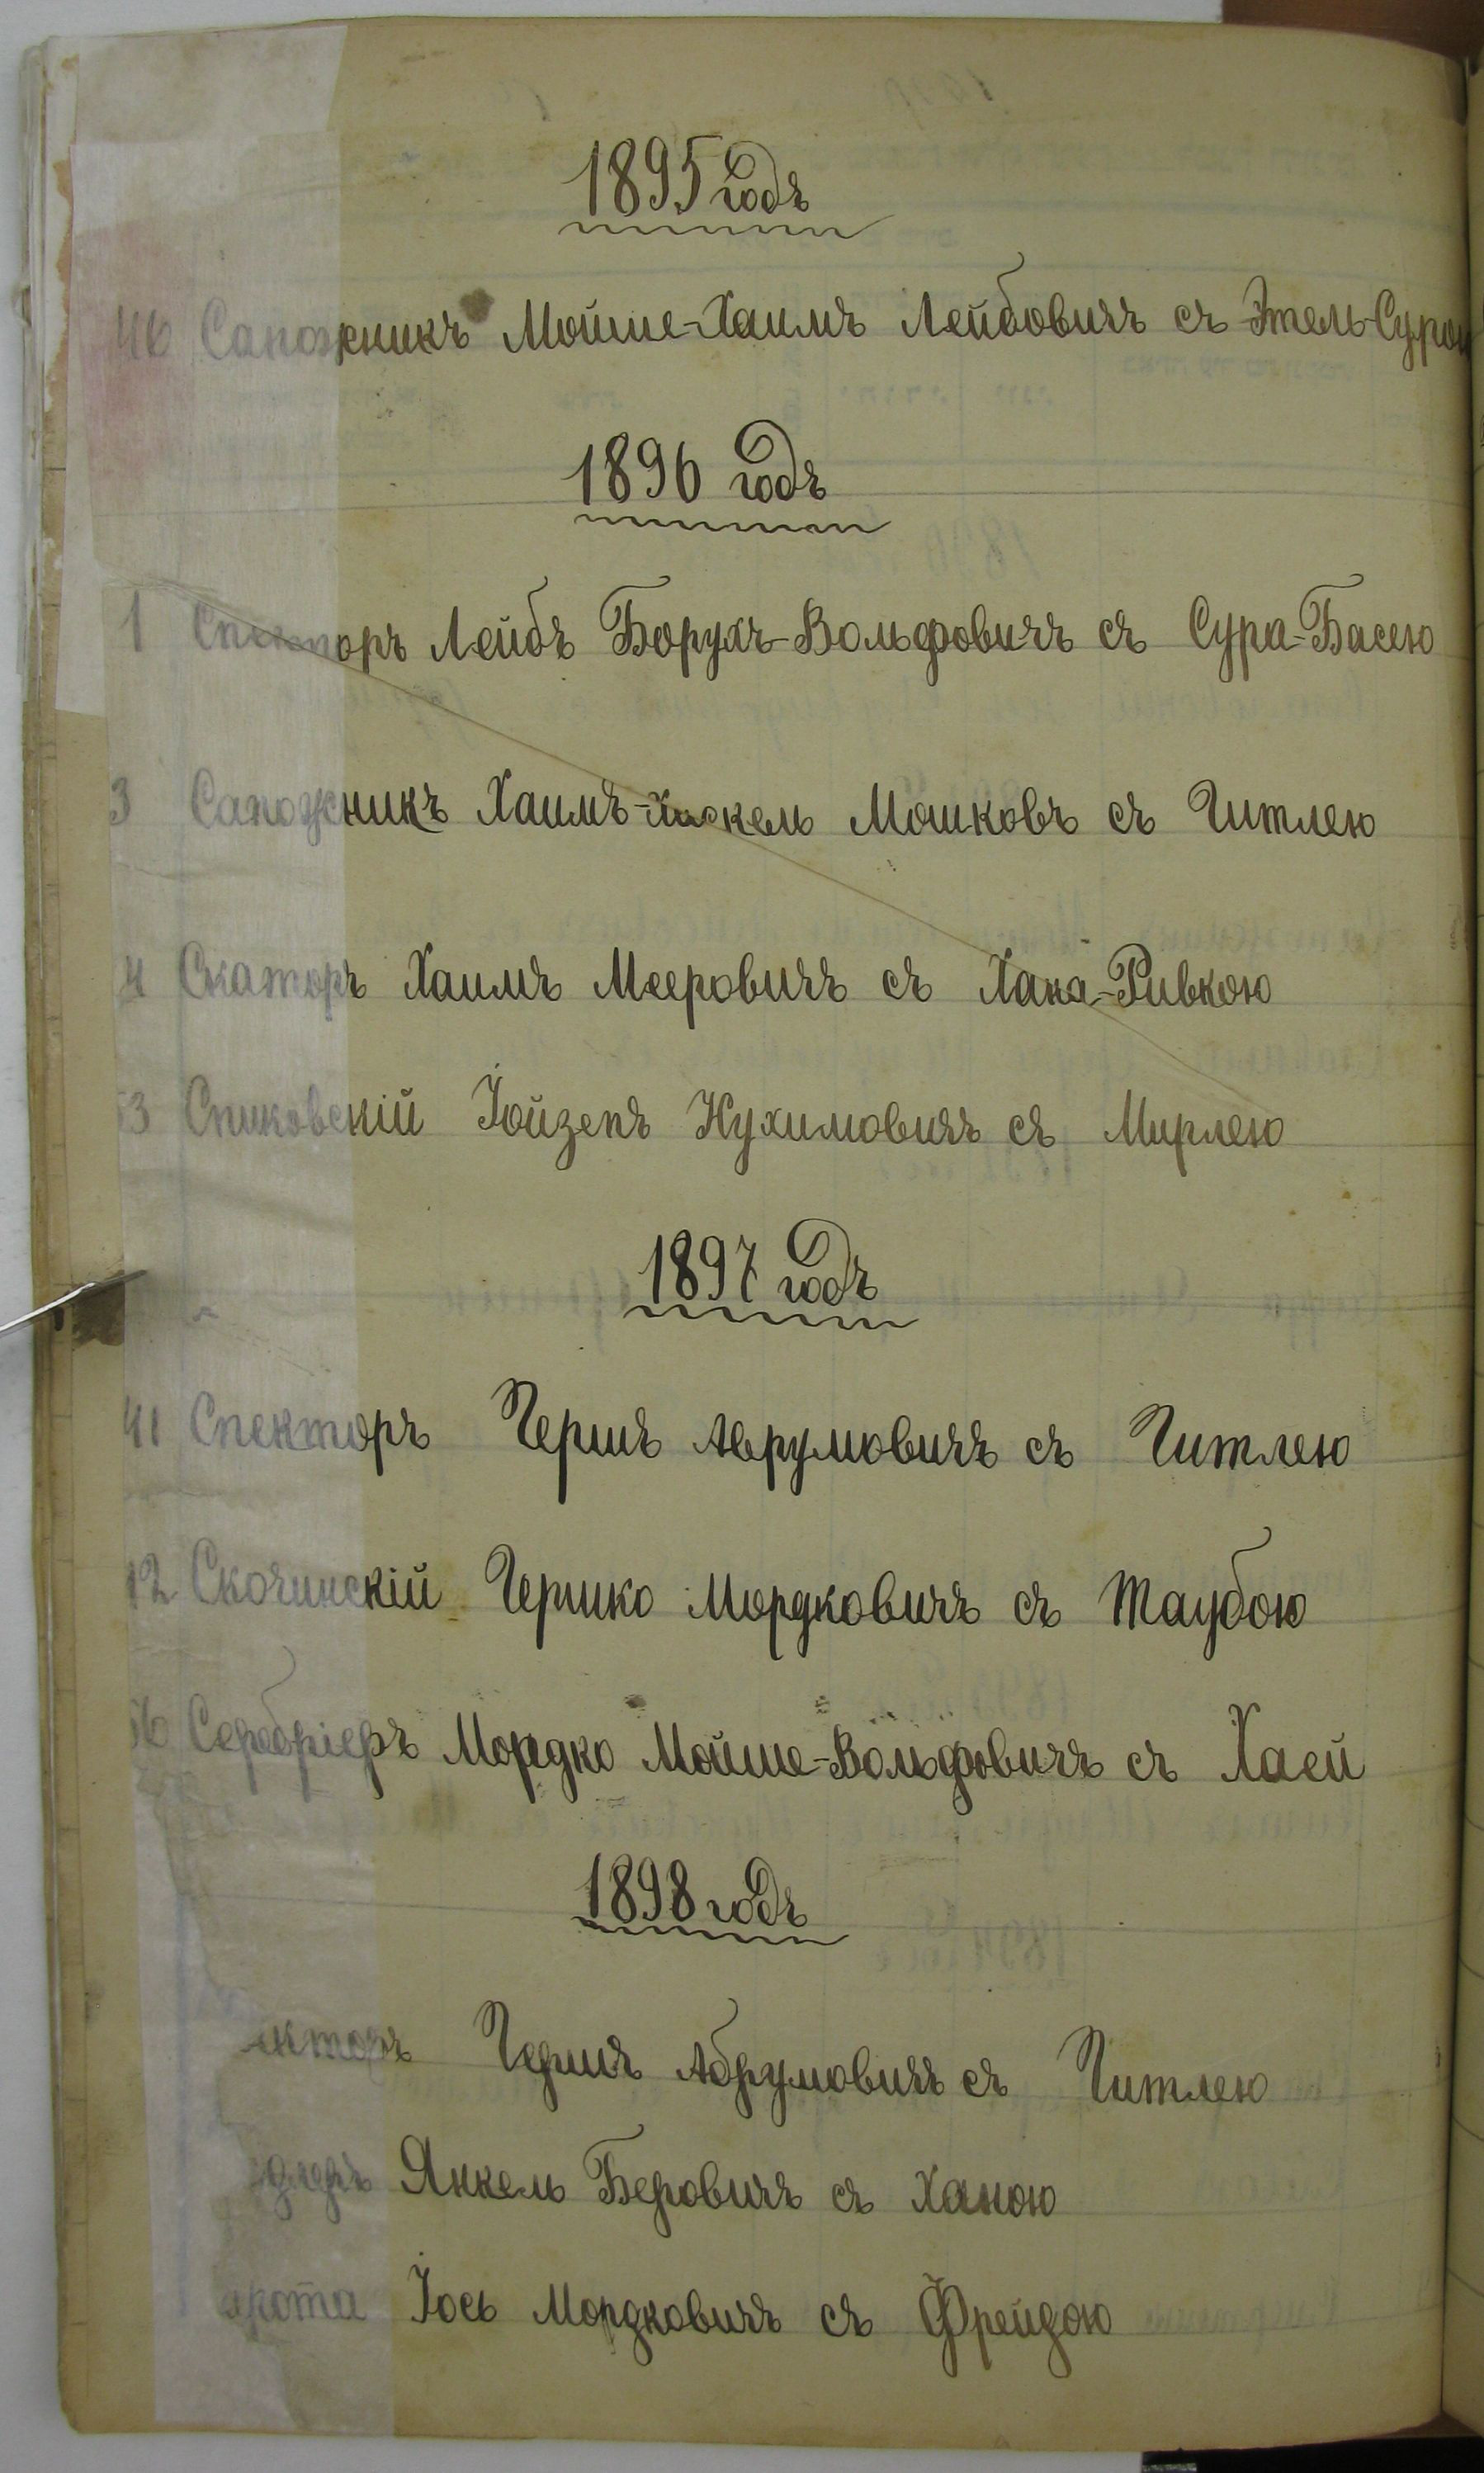 1895 годъ
46 Сапожникъ Мойше-Хаимъ Лейбовичъ съ Этель-Сурою
1896 годъ
1 Спекторъ Лейбъ Борухъ-Вольфовичъ съ Сура-Басею
3 Сапожникъ Хаимъ-Хаскель Мошковъ съ Гитлею
4 Скаторъ Хаимъ Мееровичъ съ Хана-Ривкою
53 Спиковскій Іойзепъ Нухимовичъ съ Мирлею
1897 годъ
41 Спекторъ Гершъ Аврумовичъ съ Гитлею
12 Скочинскій Гершко Мордковичъ съ Таубою
56 Серебріеръ Мордко Мойше-Вольфовичъ съ Хаей
1898 годъ
екторъ Гершъ Абрумовичъ съ Гитлею
Янкель Беровичъ съ Ханою
рота Іось Мордковичъ съ Фрейдою